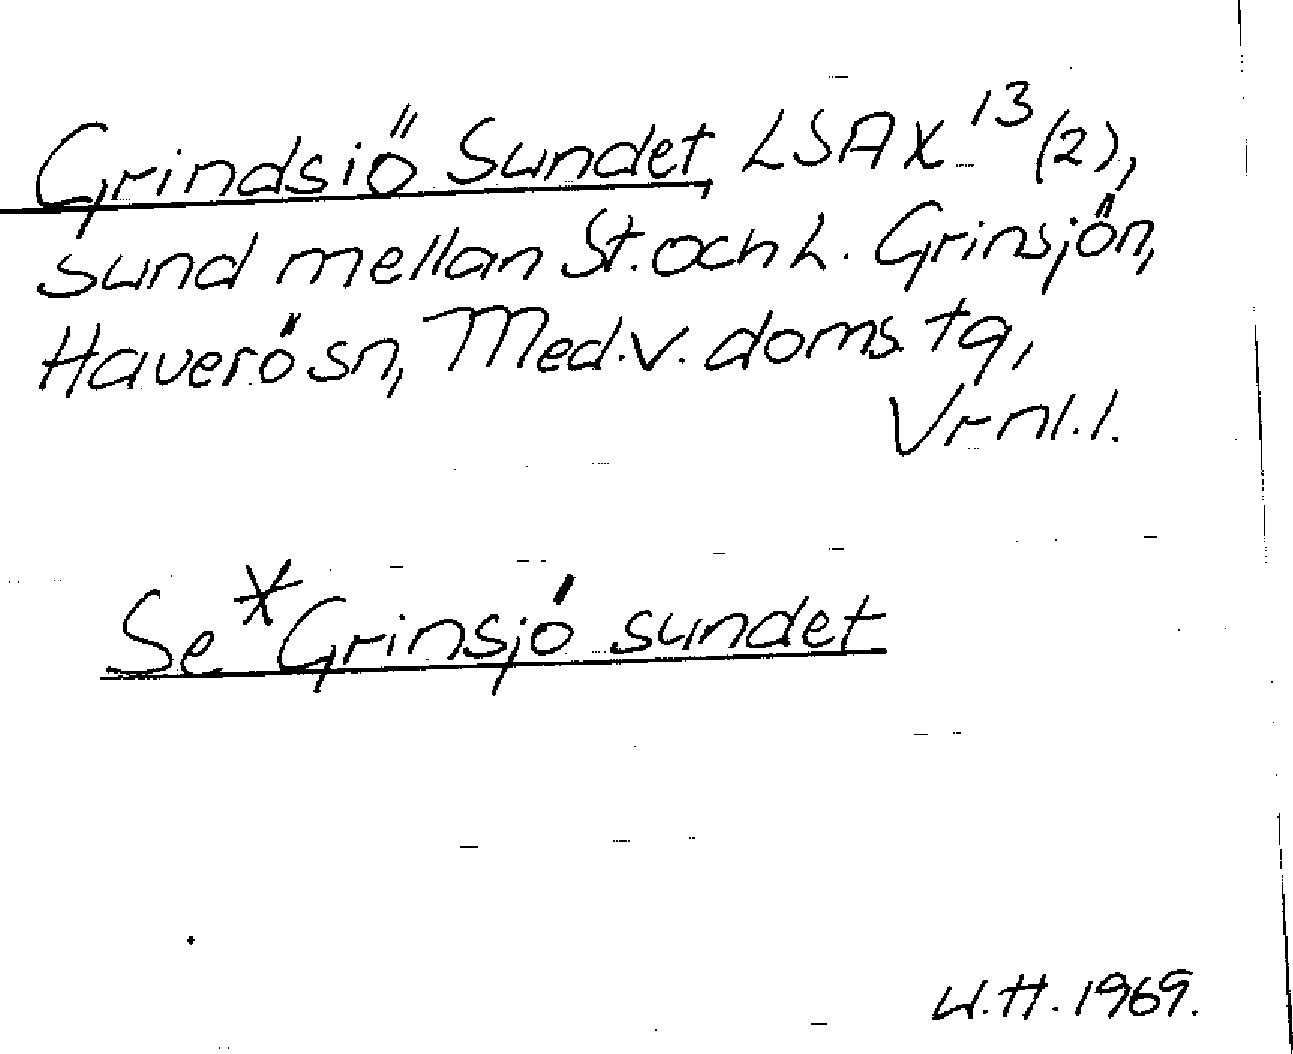 Grindsiö Sundet, LSA X 13 (2),
sund mellan St. och L. Grinsjön,
Haverö sn, Med. v. doms. tg,
Vrnl. l.
Se *Grinsjö sundet
W.H. 1969.